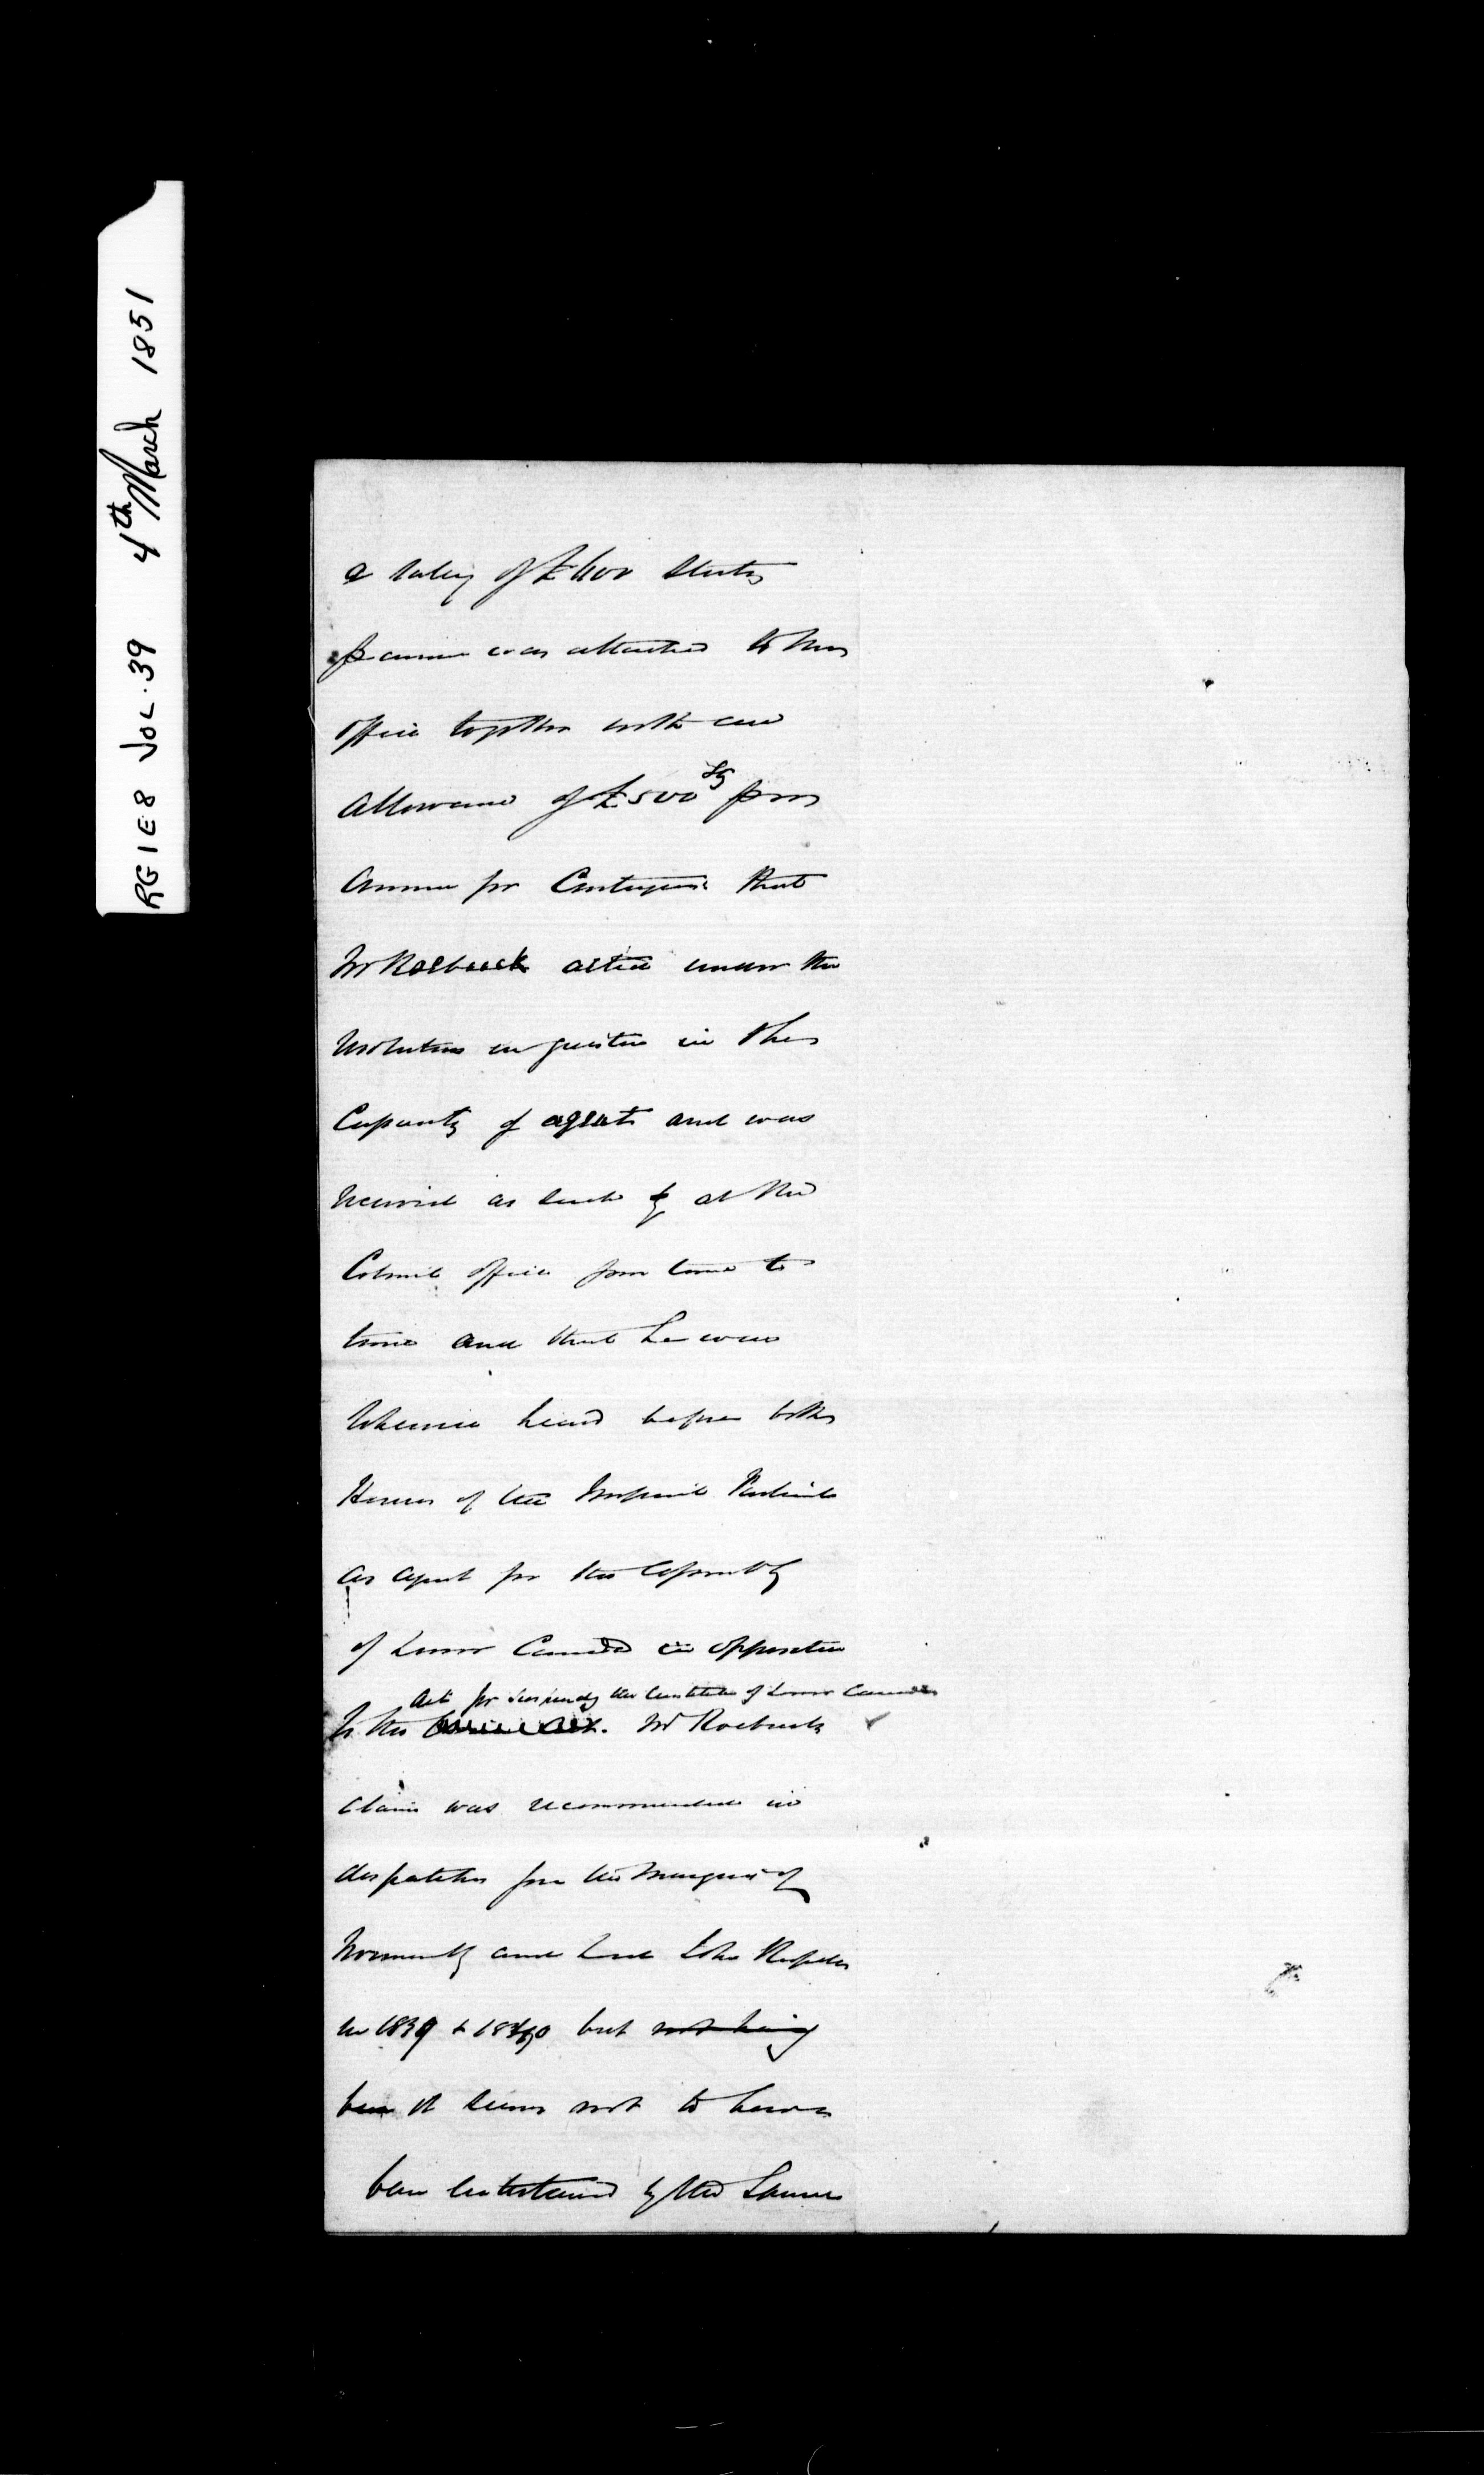 RG1E8 VOL. 39 4th March 1851
a salary of £600 Sterling
per annum was attached to this
office together with an
allowance of £500 Stg per
annum for Contingencies that
Mr Roebuck acted under the
resolution in question in the
Capacity of agent and was
received as such by at the
Colonial office from time to
time and that he was
likewise heard before both
Houses of the Imperial Parliament
as agent for the Assembly
of Lower Canada in opposition
Act for suspending the Constitution of Lower Canada
to the . Mr Roebucks
claim was recommended in
despatches from the Marquis of
Normanby and Lord John Russell
in 1839 & 1840 but not having
been it seems not to have
been entertained by the Special